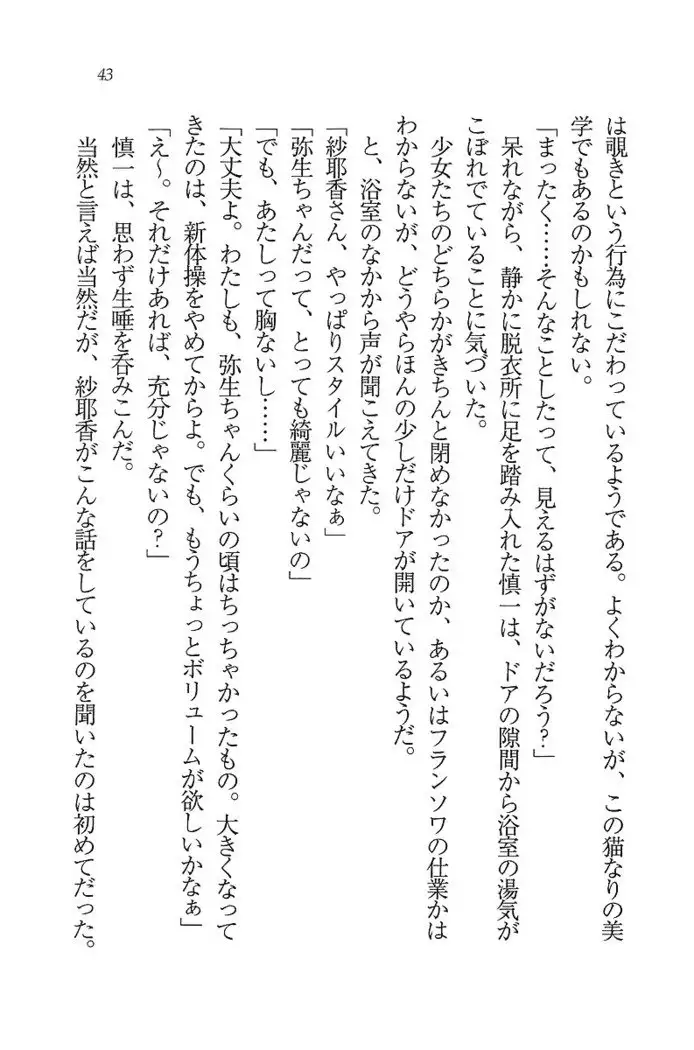 43
は覗きという行為にこだわっているようである。よくわからないが、この猫なりの美
学でもあるのかもしれない。
「まったく……そんなことしたって、見えるはずがないだろう?」
呆れながら、静かに脱衣所に足を踏み入れた慎一は、ドアの隙間から浴室の湯気が
こぼれでていることに気づいた。
少女たちのどちらかがきちんと閉めなかったのか、あるいはフランソワの仕業かは
わからないが、どうやらほんの少しだけドアが開いているようだ。
と、浴室のなかから声が聞こえてきた。
「紗耶香さん、やっぱりスタイルいいなぁ」
「弥生ちゃんだって、とっても綺麗じゃないの」
「でも、あたしって胸ないし……」
「大丈夫よ。わたしも、弥生ちゃんくらいの頃はちっちゃかったもの。大きくなって
きたのは、新体操をやめてからよ。でも、もうちょっとボリュームが欲しいかなぁ」
「え〜。それだけあれば、充分じゃないの?」
慎一は、思わず生唾を呑みこんだ。
当然と言えば当然だが、紗耶香がこんな話をしているのを聞いたのは初めてだった。